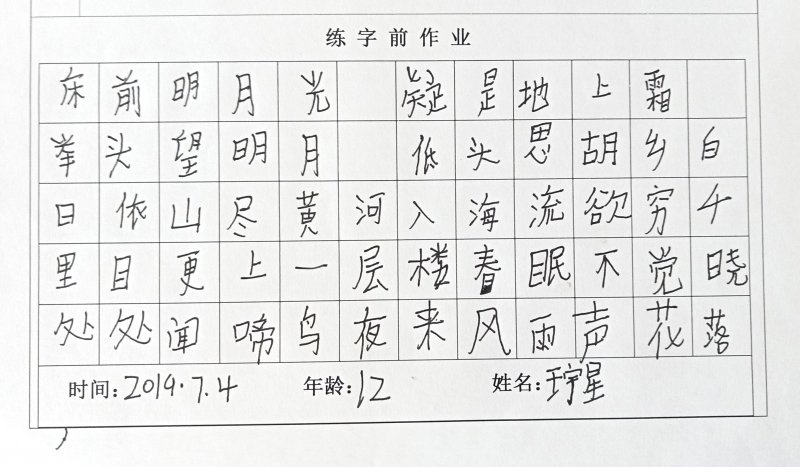 练字前作业
床前明月光 疑是地上霜
举头望明月 低头思胡乡白
日依山尽黄河入海流欲穷千
里目更上一层楼春眠不觉晓
处处闻啼鸟夜来风雨声花落
时间:2019.7.4 年龄:12 姓名:王宇星